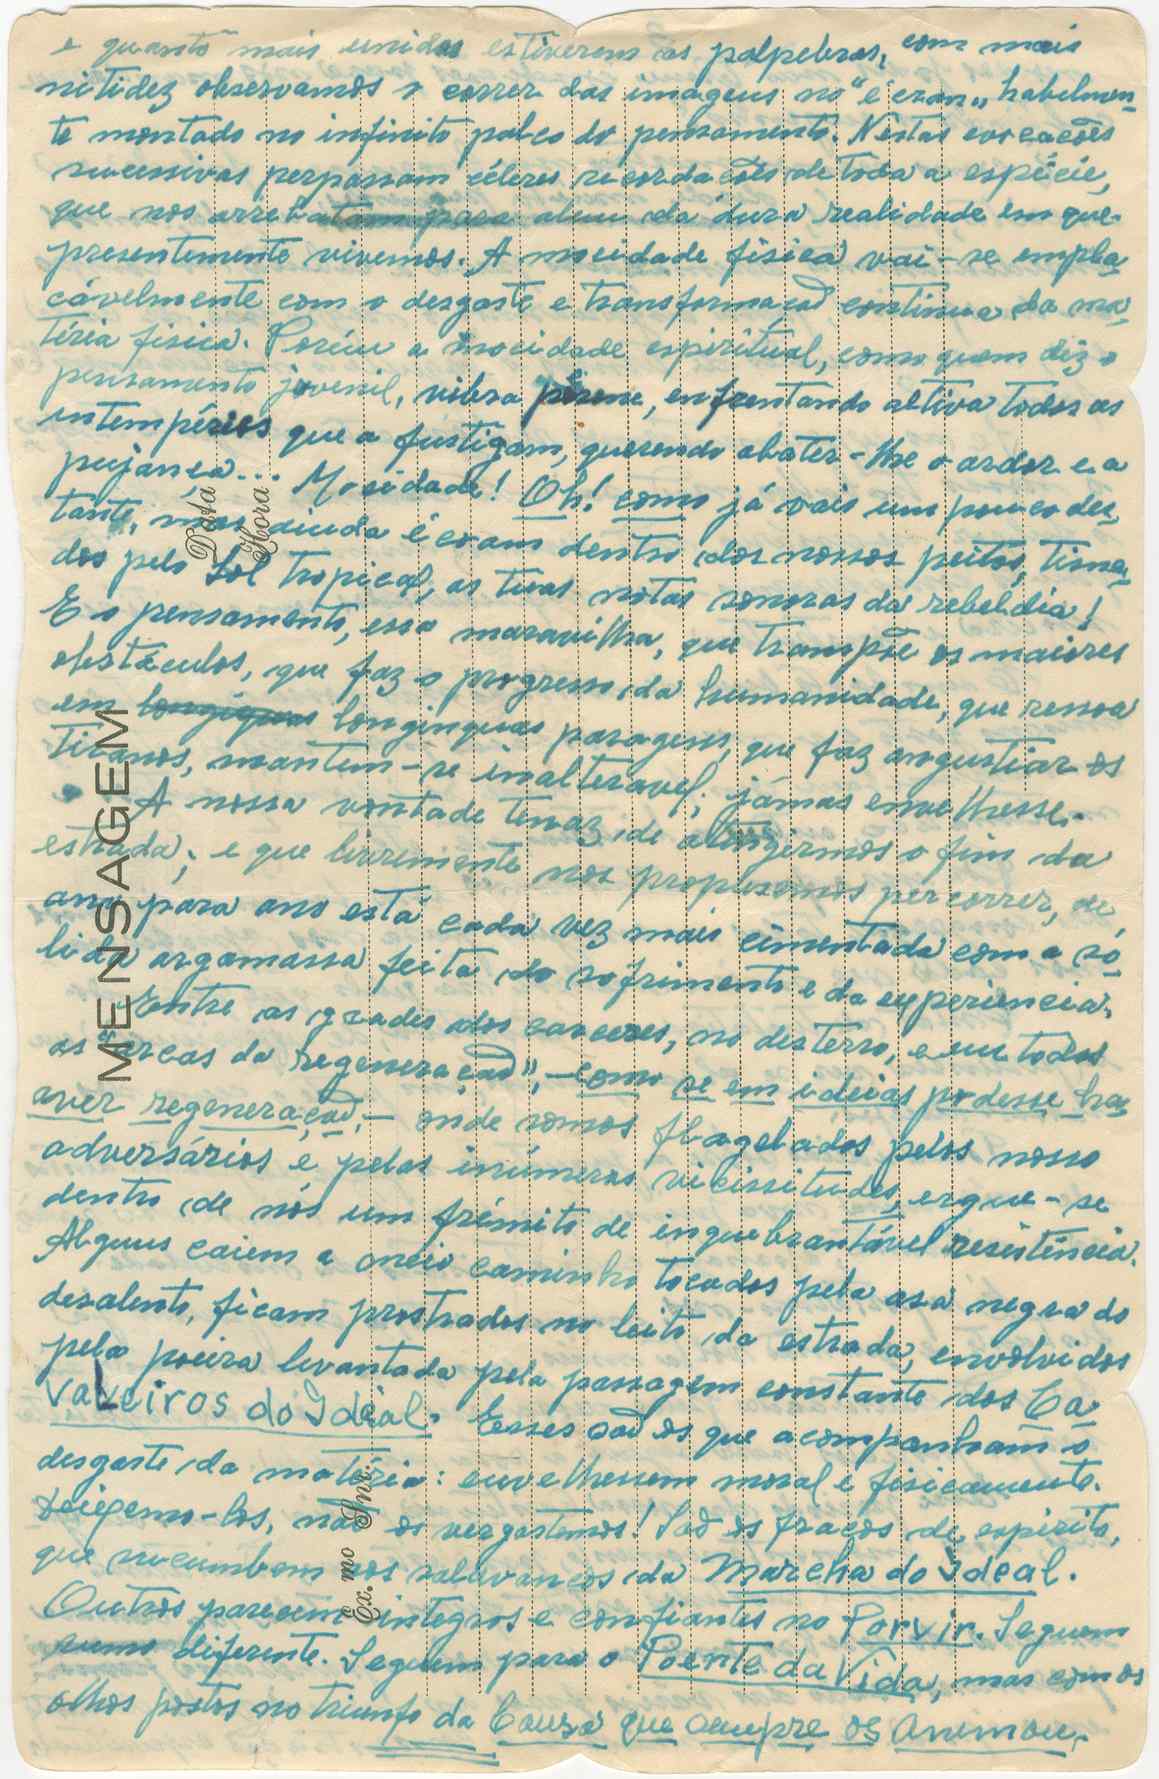 e quanto mais unidas estiverem as palpebras, com mais
nitidez observamos o correr das imagens no "écran", habelmen-
te montado no infinito palco do pensamento. Nestas evocações
sucessivas perpassam céleres recordações de toda a espécie,
que nos arrebatam para alem da dura realidade em que
presentemente vivemos. A mocidade fisica vai-se empla-
cávelmente com o desgaste e transformação continua da ma-
téria fisica. Porém a mocidade espiritual, como quem diz o
pensamento juvenil, vibra pérene, enfrentando altiva todos as
intempéries que a fustigam, querendo abater-lhe o ardor e a
pujança... Mocidade! Oh! como já vais um pouco des-
tante, mas ainda écoam dentro dos nossos peitos, tisna-
dos pelo Sol tropical, as tuas notas sonoras da rebeldia!
E o pensamento, essa maravilha, que transpõe os maiores
obstáculos, que faz o progresso da humanidade, que ressoa
em longiquas longinquas paragens, que faz angustiar os
tiranos, mantem-se inalteravel; jámas envelhesse.
A nossa vontade tenaz de atingermos o fim da
estrada, e que livremente nos propusemos percorrer, de
ano para ano está cada vez mais cimentada com a só-
lida argamassa feita do sofrimento e da experiencia.
Entre as grades dos carceres, no desterro, e em todas
as "arcas da regeneração", - como se em ideias podesse ha-
aver regeneração, - onde somos flagelados pelos nosso
adversários e pelas inúmeras vicissitudes, ergue-se
dentro de nós um frémito de inquebrantável resistência.
Alguns caiem a meio caminho tocados pela asa negra do
desalento, ficam prostrados no leito da estrada, envolvidos
pela poeira levantada pela passagem constante dos Ca-
valeiros do Idéal. Esses são os que acompanham o
desgaste da matéria: envelhessem moral e fisicamente.
Deixemo-los, não os vergastemos! São os fracos de espirito,
que sucumbem aos solavancos da Marcha do Ideal.
Outros parecem integros e confiantes no Porvir. Seguem
rumo diferente. Seguem para o Poente da Vida, mas com os
olhos postos no triunfo da Causa que sempre os animou.
MENSAGEM
Data
Hora
Ex.mo Snr.